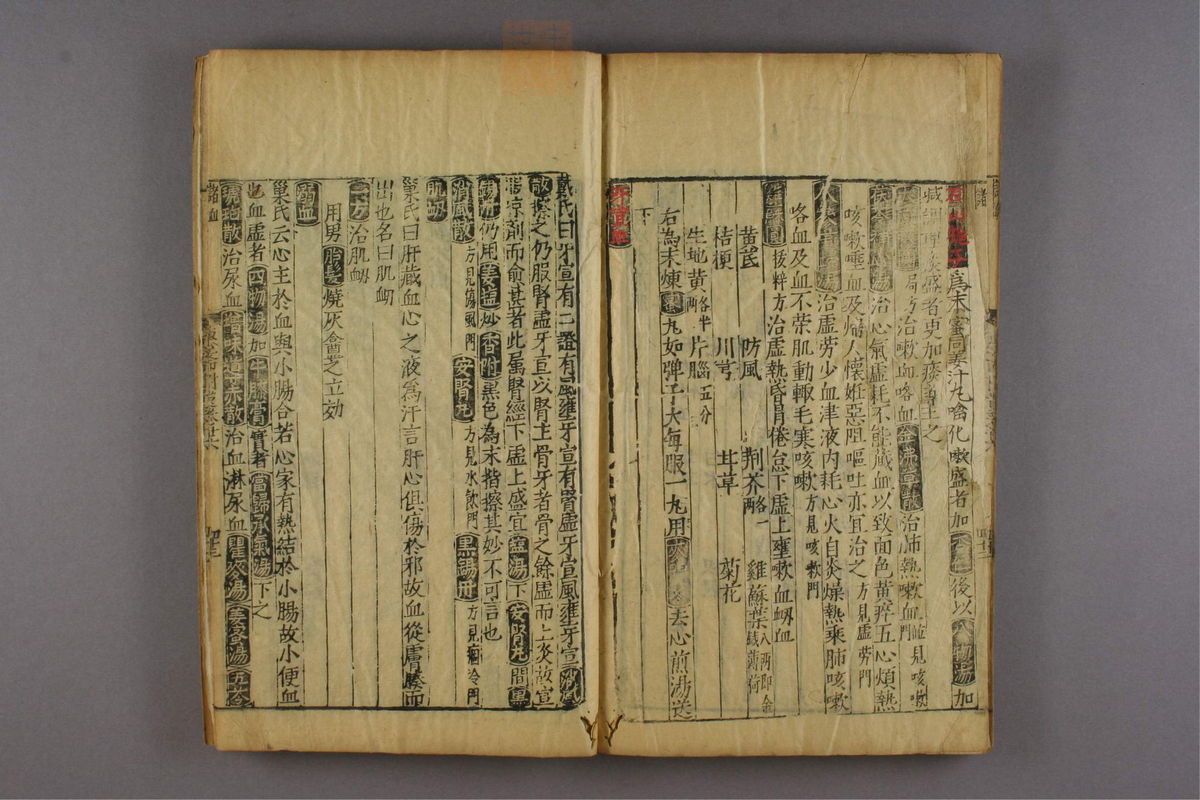 為末蜜同姜汁丸噙化嗽盛者加 後以八物湯加
減調理痰盛者更加痰藥主之
局方治嗽血咯血 治肺熱嗽血 並見咳嗽門
茯苓補心湯治心氣虛耗不能藏血以致面色黃瘁五心煩熱
咳嗽唾血及婦人懷姙惡阻嘔吐亦宜治之方見虛勞門
治虛勞少血津液內耗心火自炎燥熱乘肺咳嗽
咯血及血不榮肌動輒毛寒咳嗽方見咳嗽門
雞蘇圓拔粹方治虛熱昏冒倦怠下虛上壅嗽血衂血
黃芪 防風 荆芥各一兩 雞蘇葉八兩即金錢薄荷
桔梗 川芎 甘草 菊花
生地黃各半兩 片腦五分
右為末煉蜜丸如彈子大每服一丸用麥門冬去心煎湯送
下
牙宣
戴氏曰牙宣有二證有風壅牙宣有腎虛牙宣風壅牙宣消風
散擦之仍服腎虛牙宣以腎主骨牙者骨之餘虛而上炎故宣
服凉劑而愈甚者此属腎經下虛上盛宜鹽湯下安腎丸間黑
錫丹仍用姜塩炒香附黑色為末揩擦其妙不可言也
消風散方見傷風門 安腎丸方見水飲門 黑錫丹方見痼冷門
肌衂
巢氏曰肝藏血心之液為汗言肝心俱傷於邪故血從膚腠而
出也名曰肌衂
一方治肌衂
用男胎髮燒灰盦之立効
溺血
巢氏云心主於血與小腸合若心家有熱結於小腸故小便血
也血虛者四物湯加牛膝膏實者當歸承氣湯下之
治尿血增味導赤散治血淋尿血瞿麥湯姜蜜湯五苓
諸血